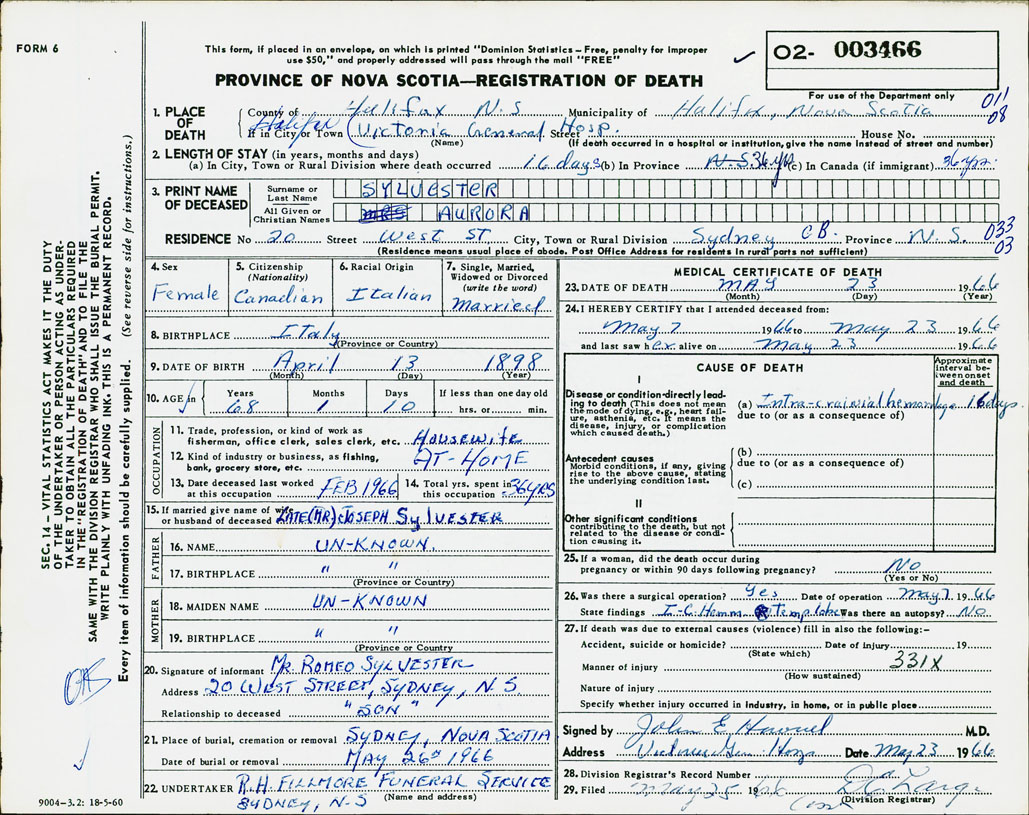 FORM 6
This form, if placed in an envelope, on which is printed "Dominion Statistics – Free, penalty for improper
use $50," and properly addressed will pass through the mail "FREE"
02- 003466
PROVINCE OF NOVA SCOTIA—REGISTRATION OF DEATH
For use of the Department only
011
08
1. PLACE OF DEATH
County of Halifax N.S Municipality of Halifax, Nova Scotia
If in City or Town Halifax (Victoria General Street Hosp. House No.
(Name) (If death occurred in a hospital or institution, give the name instead of street and number)
2. LENGTH OF STAY (in years, months and days)
(a) In City, Town or Rural Division where death occurred 16 days (b) In Province N.S. 36 yrs (c) In Canada (if immigrant) 36 yrs.
3. PRINT NAME OF DECEASED
Surname or Last Name SYLVESTER
All Given or Christian Names MRS AURORA
RESIDENCE No 20 Street West ST City, Town or Rural Division Sydney CB. Province N.S.
033
03
(Residence means usual place of abode. Post Office Address for residents in rural parts not sufficient)
4. Sex
Female
5. Citizenship
(Nationality)
Canadian
6. Racial Origin
Italian
7. Single, Married,
Widowed or Divorced
(write the word)
Married
8. BIRTHPLACE Italy
(Province or Country)
9. DATE OF BIRTH April 13 1898
(Month) (Day) (Year)
10. AGE in Years Months Days If less than one day old
68 1 10 hrs. or min.
OCCUPATION
11. Trade, profession, or kind of work as
fisherman, office clerk, sales clerk, etc. HOUSEWIFE
12. Kind of industry or business, as fishing,
bank, grocery store, etc. AT-HOME
13. Date deceased last worked
at this occupation FEB 1966
14. Total yrs. spent in
this occupation 36 YRS
15. If married give name of wife
or husband of deceased LATE (MR) JOSEPH SYLVESTER
FATHER
16. NAME UN-KNOWN.
17. BIRTHPLACE " "
(Province or Country)
MOTHER
18. MAIDEN NAME UN-KNOWN
19. BIRTHPLACE " "
(Province or Country)
20. Signature of informant MR. ROMEO SYLVESTER
Address 20 WEST STREET, SYDNEY, N.S
Relationship to deceased "SON"
21. Place of burial, cremation or removal SYDNEY, NOVA SCOTIA
Date of burial or removal MAY 26th 1966
22. UNDERTAKER R.H. FILLMORE FUNERAL SERVICE
SYDNEY, N-S (Name and address)
MEDICAL CERTIFICATE OF DEATH
23. DATE OF DEATH MAY 23 1966
(Month) (Day) (Year)
24. I HEREBY CERTIFY that I attended deceased from:
May 7 1966 to May 23 1966
and last saw her alive on May 23 1966
CAUSE OF DEATH
Approximate
interval be-
tween onset
and death
I
Disease or condition directly lead-
ing to death (This does not mean
the mode of dying, e.g., heart fail-
ure, asthenia, etc. It means the
disease, injury, or complication
which caused death.)
(a) Intra-crainial hemorrhage 16 days.
due to (or as a consequence of)
Antecedent causes
Morbid conditions, if any, giving
rise to the above cause, stating
the underlying condition last.
(b)
due to (or as a consequence of)
(c)
II
Other significant conditions
contributing to the death, but not
related to the disease or condi-
tion causing it.
25. If a woman, did the death occur during
pregnancy or within 90 days following pregnancy? No
(Yes or No)
26. Was there a surgical operation? Yes Date of operation May 7 1966
State findings I-C Hemm. Temp lobe Was there an autopsy? NO
27. If death was due to external causes (violence) fill in also the following:–
Accident, suicide or homicide? Date of injury 19
(State which)
Manner of injury 331X
(How sustained)
Nature of injury
Specify whether injury occurred in industry, in home, or in public place
Signed by John E M.D.
Address Date May 23 1966
28. Division Registrar's Record Number
29. Filed May 25 1966
(Division Registrar)
SEC. 14 – VITAL STATISTICS ACT MAKES IT THE DUTY
OF THE UNDERTAKER OR PERSON ACTING AS UNDER-
TAKER TO OBTAIN ALL THE PARTICULARS REQUIRED
IN THE "REGISTRATION OF DEATH" AND TO FILE THE
SAME WITH THE DIVISION REGISTRAR WHO SHALL ISSUE THE BURIAL PERMIT.
WRITE PLAINLY WITH UNFADING INK. THIS IS A PERMANENT RECORD.
Every item of information should be carefully supplied. (See reverse side for instructions.)
9004-3.2: 18-5-60